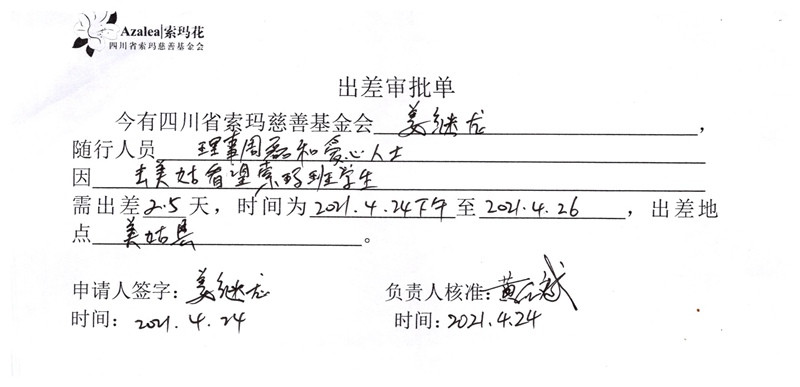 Azalea|索玛花
四川省索玛慈善基金会
出差审批单
今有四川省索玛慈善基金会 姜继龙 ，
随行人员 理事周磊和爱心人士
因 去美姑看望索玛班学生
需出差 2.5 天，时间为 2021.4.24下午 至 2021.4.26 ，出差地
点 美姑县 。
申请人签字：姜继龙 负责人核准：黄
时间：2021.4.24 时间：2021.4.24